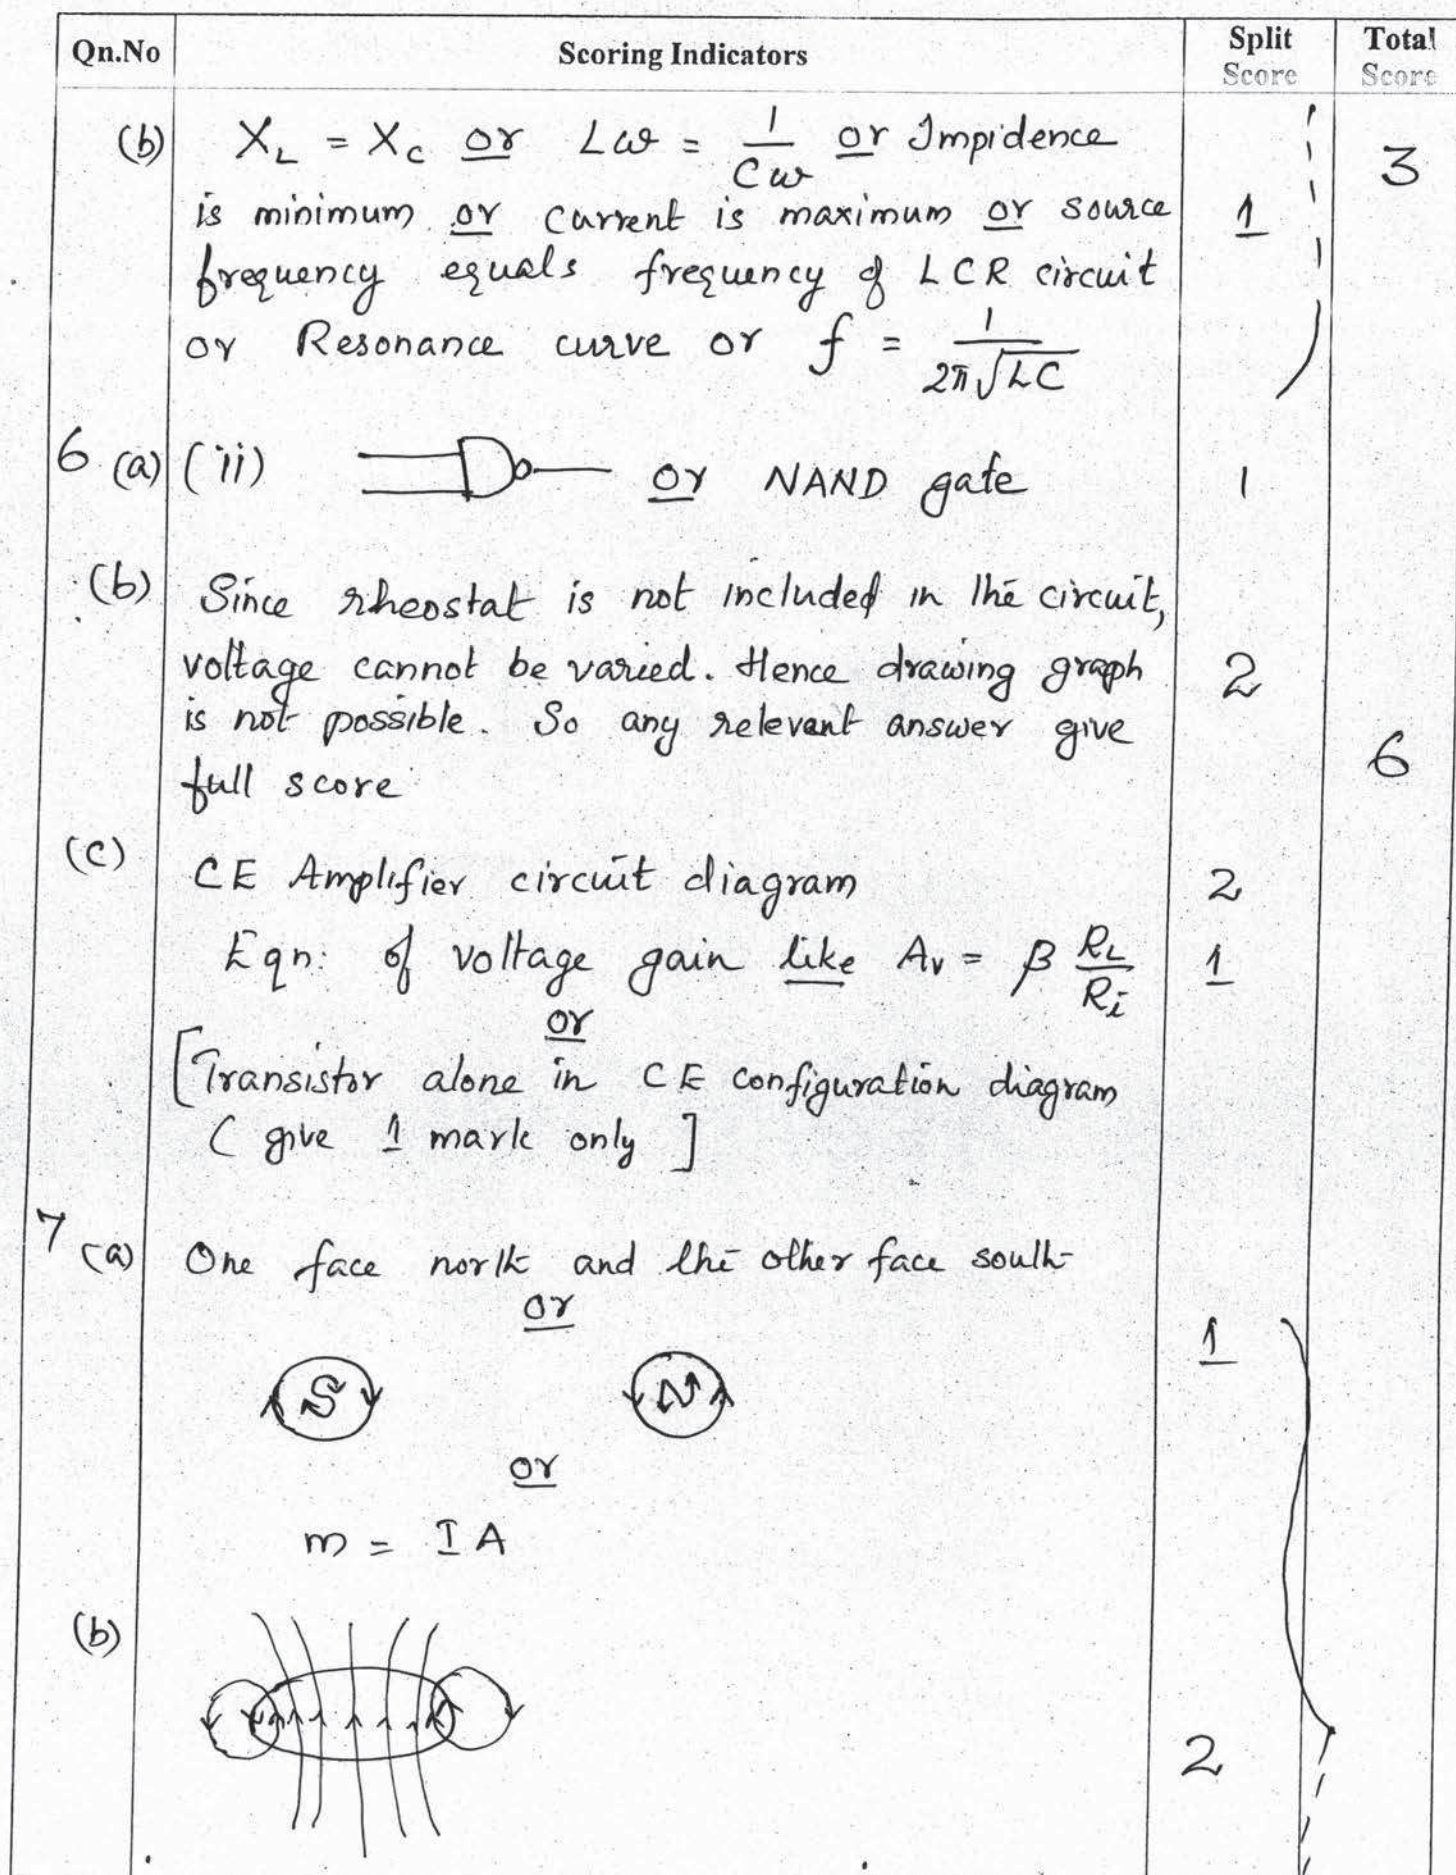 Qn.No Scoring Indicators Split Score Total Score
(b) X_L = X_C or Lω = 1/Cω or Impidence
3
is minimum or current is maximum or source 1
frequency equals frequency of LCR circuit
or Resonance curve or f = 1/2π√LC
6 (a) (ii) or NAND gate 1
(b) Since rheostat is not included in the circuit,
voltage cannot be varied. Hence drawing graph 2
is not possible. So any relevant answer give
6
full score
(c) CE Amplifier circuit diagram 2
Eqn: of voltage gain like Av = β R_L/R_i 1
or
[Transistor alone in CE configuration diagram
( give 1 mark only ]
7 (a) One face north and the other face south
or
1
S N
or
m = IA
(b)
2